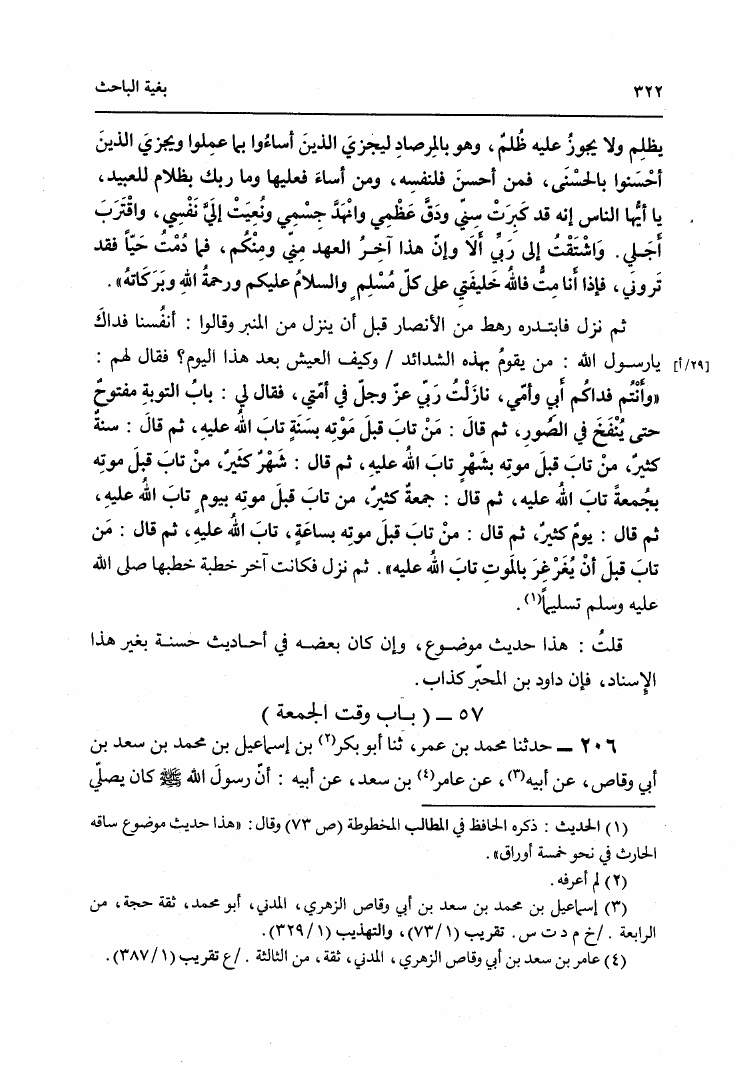 ٣٢٢ بغية الباحث
يظلِم ولا يجوزُ عليه ظُلمٌ، وهو بالمرصادِ ليجزيَ الذينَ أساءُوا بما عملوا ويجزيَ الذينَ
أحْسَنوا بالحُسْنَى، فمن أحسنَ فلنفسِه، ومن أساءَ فعليها وما ربك بظلام للعبيد،
يا أيُّها الناس إنه قد كبرَتْ سِنيِّ ودَقَّ عَظْمِي وانْهَدَّ جِسْمِي ونُعِيَتْ إليَّ نَفْسِي، واقْتَرَبَ
أَجَلي. وَاشْتَقْتُ إلى رَبِّي أَلَا وإنّ هذا آخـرُ العهد مِنّي ومنْكُم، فما دُمْتُ حَيّاً فقد
تَروني، فإذا أنا متُّ فالله خَليفَتِي على كلّ مُسْلِمٍ والسلامُ عليكم ورحمةُ اللهِ وبَرَكَاتهُ».
ثم نزل فابتـدره رهط من الأنصار قبل أن ينزل من المنبر وقالوا : أنفُسنا فداكَ
يارسـول الله : من يقومُ بهذه الشدائد / وكيف العيش بعد هذا اليوم؟ فقال لهم : [٢٩/أ]
«وأنْتُم فداكُم أبي وأمّي، نازَلْتُ رَبّي عزّ وجلّ في أمّتي، فقال لي : بابُ التوبةِ مفتوحٌ
حتى يُنْفَخَ في الصُورِ، ثم قالَ : مَنْ تابَ قبلَ مَوْتِه بسَنَةٍ تابَ اللهُ عليهِ، ثم قالَ : سنةٌ
كثيرٌ، منْ تابَ قبلَ موتِه بشَهْرٍ تابَ اللهُ عليهِ، ثم قال : شَهْرٌ كثيرٌ، منْ تابَ قبلَ موتِه
بجُمعةً تابَ اللهُ عليه، ثم قال : جمعةٌ كثيرٌ، من تابَ قبلَ موتِه بيومٍ تابَ اللهُ عليهِ،
ثم قال : يومٌ كثيرٌ، ثم قال : منْ تابَ قبلَ موتِه بساعَةٍ، تابَ اللهُ عليهِ، ثم قال : مَن
تابَ قبلَ أنْ يُغَرْغِرَ بالموتِ تابَ اللهُ عليه». ثم نزل فكانت آخر خطبة خطبها صلى الله
عليه وسلم تسليماً(١).
قلتُ : هذا حديث موضـوع، وإن كان بعضـه في أحـاديث حسنـة بغير هذا
الإِسناد، فإن داود بن المحبّر كذاب.
٥٧ ــ ( بـاب وقت الجمعة )
٢٠٦ ــ حدثنا محمد بن عمر، ثنا أبو بكر(٢) بن إسماعيل بن محمد بن سعد بن
أبي وقاص، عن أبيه(٣)، عن عامر(٤) بن سعد، عن أبيه : أنّ رسولَ الله ﷺ كان يصلّي
(١) الحديث : ذكره الحافظ في المطالب المخطوطة (ص ٧٣) وقال: «هذا حديث موضوع ساقه
الحارث في نحو خمسة أوراق».
(٢) لم أعرفه.
(٣) إسماعيل بن محمد بن سعد بن أبي وقاص الزهري، المدني، أبو محمد، ثقة حجة، من
الرابعة ./خ م د ت س. تقريب (١/٧٣)، والتهذيب (١/٣٢٩).
(٤) عامر بن سعد بن أبي وقاص الزهري، المدني، ثقة، من الثالثة ./ع تقريب (١/٣٨٧).